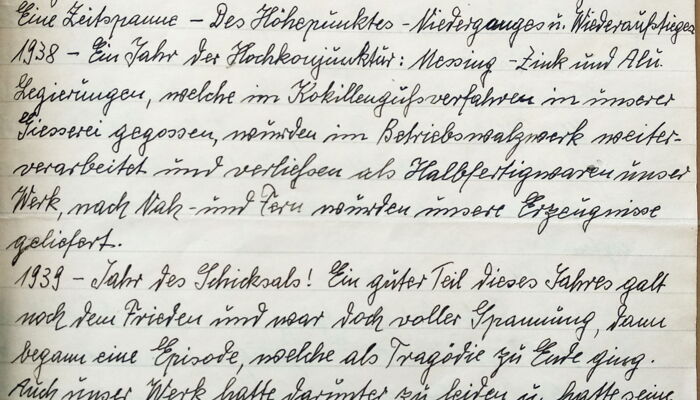 Eine Zeitspanne – Des Höhepunktes – Niederganges u. Wiederaufstieges
1938 – Ein Jahr der Hochkonjunktur: Messing – Zink und Alu.
Legierungen, welche im Kokillengußverfahren in unserer
Giesserei gegossen, wurden im Betriebswalzwerk weiter-
verarbeitet und verließen als Halbfertigwaren unser
Werk, nach Nah- und Fern wurden unsere Erzeugnisse
geliefert.
1939 – Jahr des Schicksals! Ein guter Teil dieses Jahres galt
noch dem Frieden und war doch voller Spannung, dann
begann eine Episode, welche als Tragödie zu Ende ging.
Auch unser Werk hatte darunter zu leiden u. hatte seine